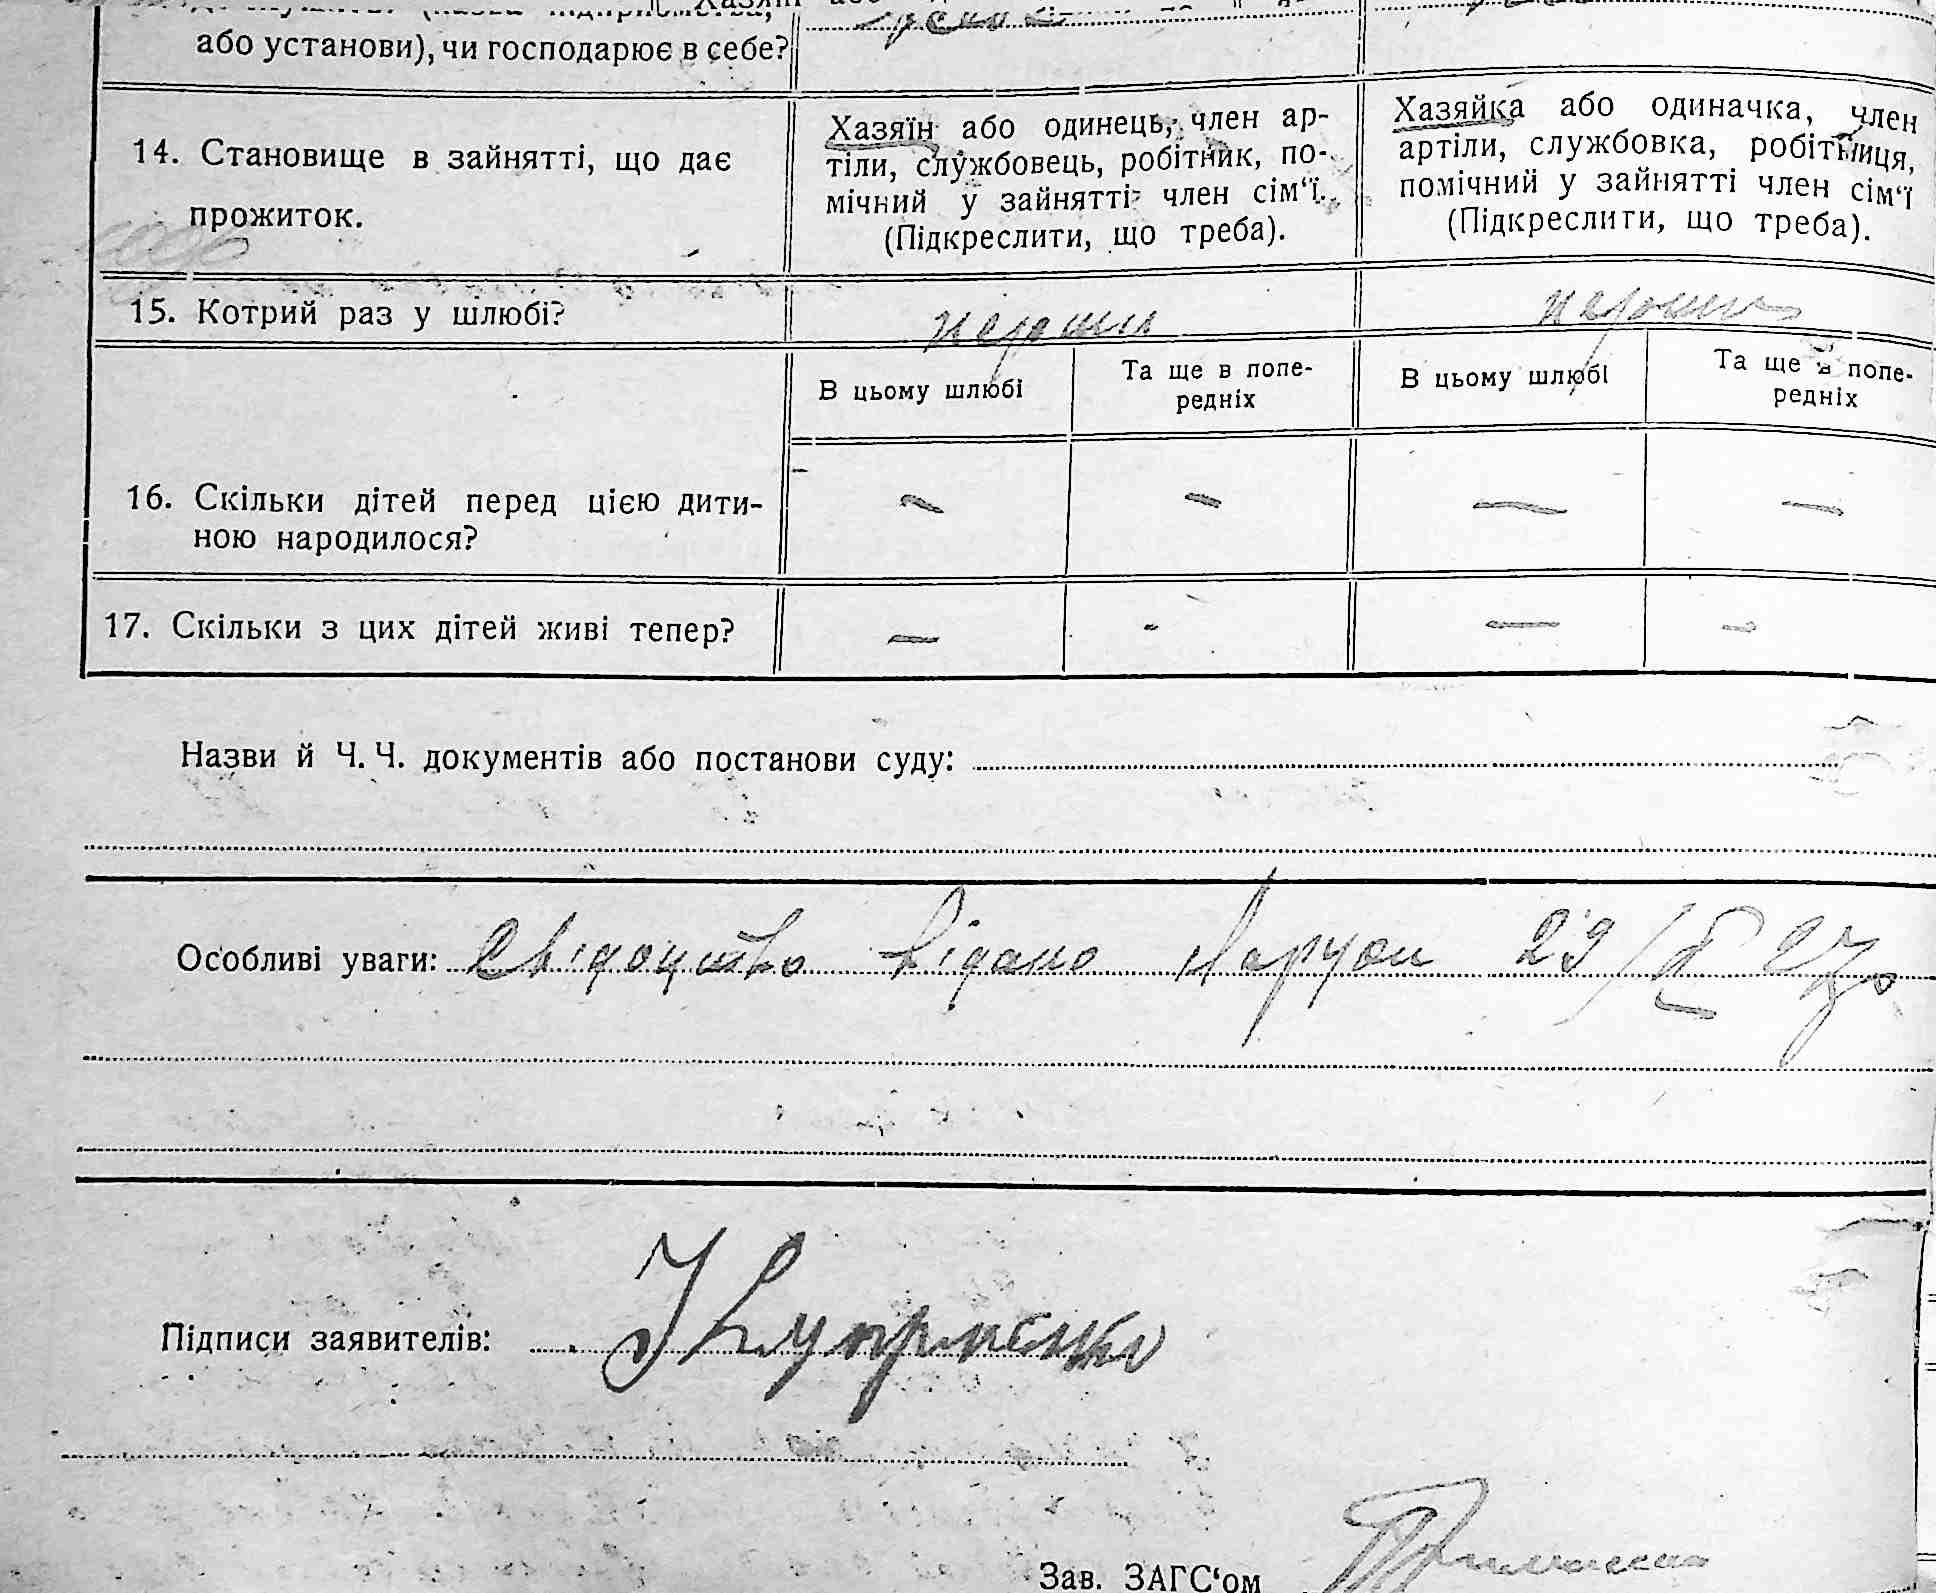 або установи), чи господарює в себе?
14. Становище в зайнятті, що дає
прожиток.
Хазяїн або одинець, член ар-
тіли, службовець, робітник, по-
мічний у зайнятті член сім‘ї.
(Підкреслити, що треба).
Хазяйка або одиначка, член
артіли, службовка, робітниця,
помічний у зайнятті член сім‘ї
(Підкреслити, що треба).
15. Котрий раз у шлюбі?
В цьому шлюбі
Та ще в попе-
редніх
В цьому шлюбі
Та ще в попе-
редніх
16. Скільки дітей перед цією дити-
ною народилося?
— — — —
17. Скільки з цих дітей живі тепер?
— - — —
Назви й Ч. Ч. документів або постанови суду:
Особливі уваги: Свідоцтво Видано 29/
Підписи заявителів: Куприенко
Зав. ЗАГС‘ом